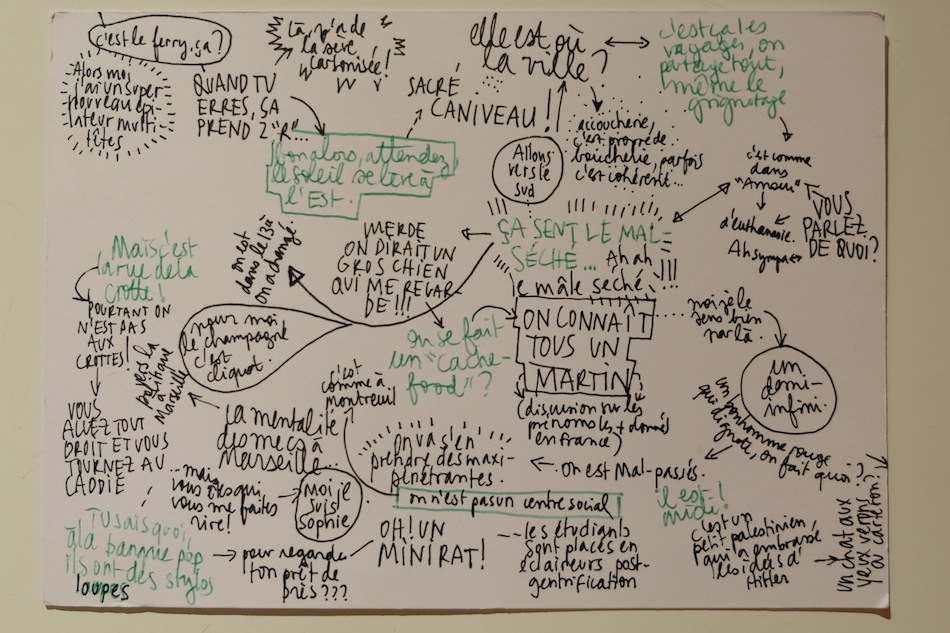 c'est le ferry, ça?
Alors moi,
j'ai un super
nouveau épi-
lateur multi
têtes
QUAND TU
ERRES, ÇA
PREND 2 "R"...
Là, y'a de
la sève
cartonisée!
SACRÉ
CANIVEAU!!
elle est où
la ville?
c'est ça les
voyages, on
partage tout,
même le
grignotage
bon alors, attendez
le soleil se lève à
l'Est.
Allons
vers le
sud
accoucherie,
c'est proche de
boucherie, parfois
c'est cohérent...
c'est comme
dans
"Amour"
d'euthanasie.
Ah sympa
VOUS
PARLEZ
DE QUOI?
ÇA SENT LE MAL-
SÉCHÉ... Ah ah
le mâle séché
MERDE
ON DIRAIT UN
GROS CHIEN
QUI ME REGAR-
DE!!!
on est
dans le 13 à
on a changé
Mais c'est
la rue de la
crotte!
POURTANT ON
N'EST PAS
AUX
CROTTES!
VOUS
ALLEZ TOUT
DROIT ET VOUS
TOURNEZ AU
CADDIE
pour moi
le champagne
c'est
cliquot.
vers la
politique
à
Marseille
la mentalité
des mecs à
Marseille...
c'est
comme à
montreuil
on se fait
un "cache-
food"?
ON CONNAÎT
TOUS UN
MARTIN
(discussion sur les
prénoms les + donnés
en France)
moi je le
sens bien
par là.
un
demi-
infini.
un bonhomme rouge
qui clignote, on fait quoi?
on va s'en
prendre des maxi-
pénétrantes.
on est Mal-passés.
on n'est pas un centre social
il est
midi!
...mais
vous êtes qui,
vous me faites
rire!
Moi je
suis
Sophie
TU sais quoi,
à la banque pop
ils ont des stylos
loupes
pour regarder
ton prêt de
près???
OH! UN
MINIRAT!
les étudiants
sont placés en
éclaireurs post-
gentrification
c'est un
petit palestinien,
qui a embrassé
les idées d'
Hitler
un chat aux
yeux verrons?
au carteron?